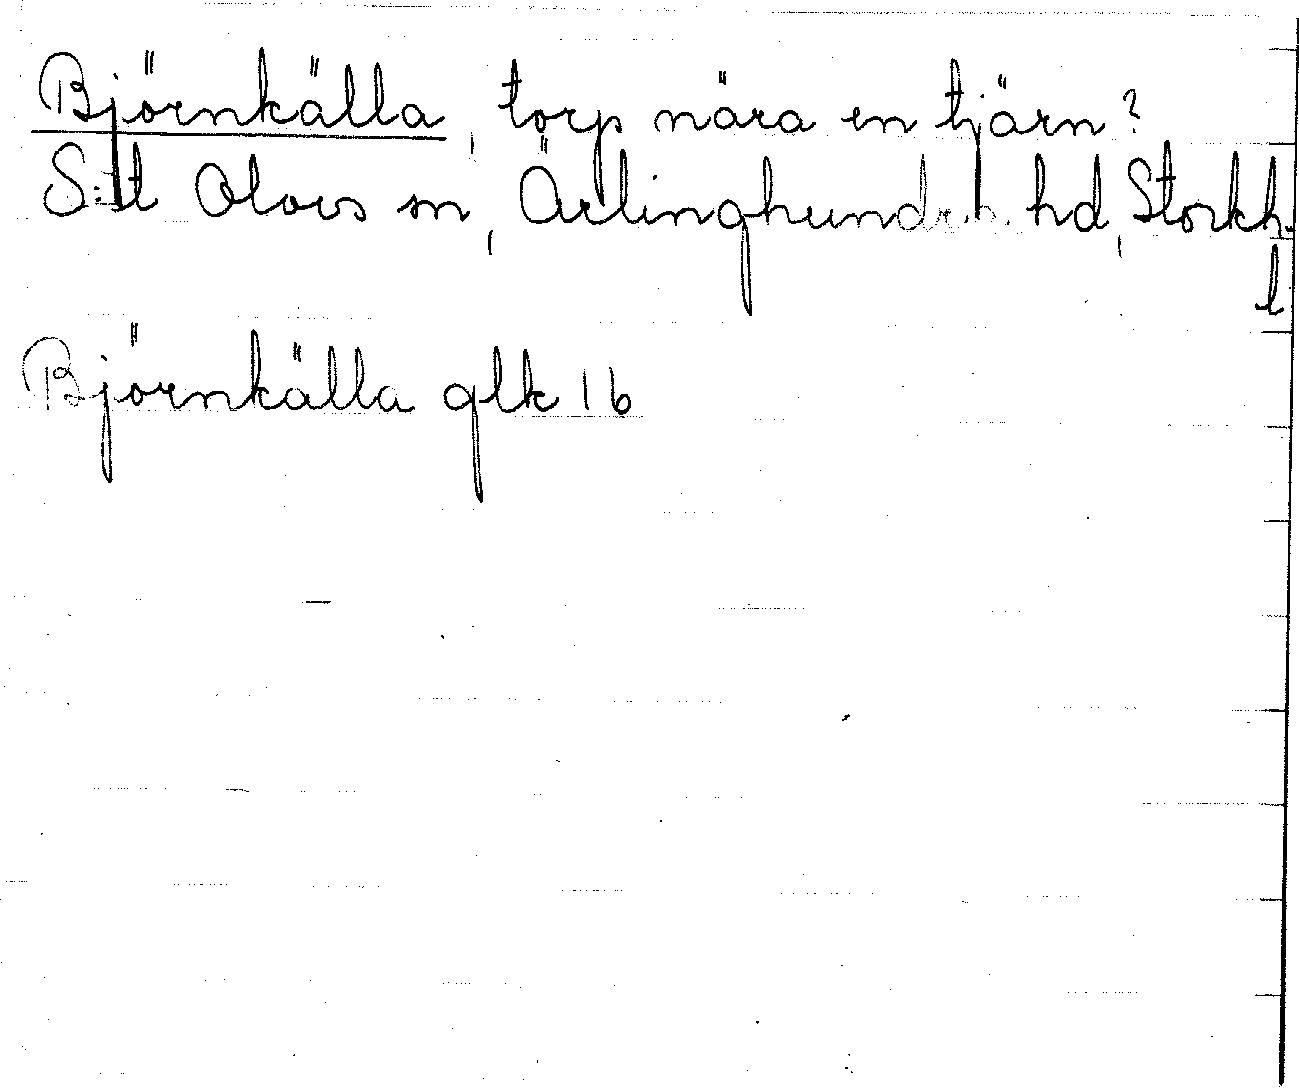 Björnkälla, torp nära en tjärn?
S:t Olovs sn, Ärlinghundra hd, Stockh.
l
Björnkälla glk 16